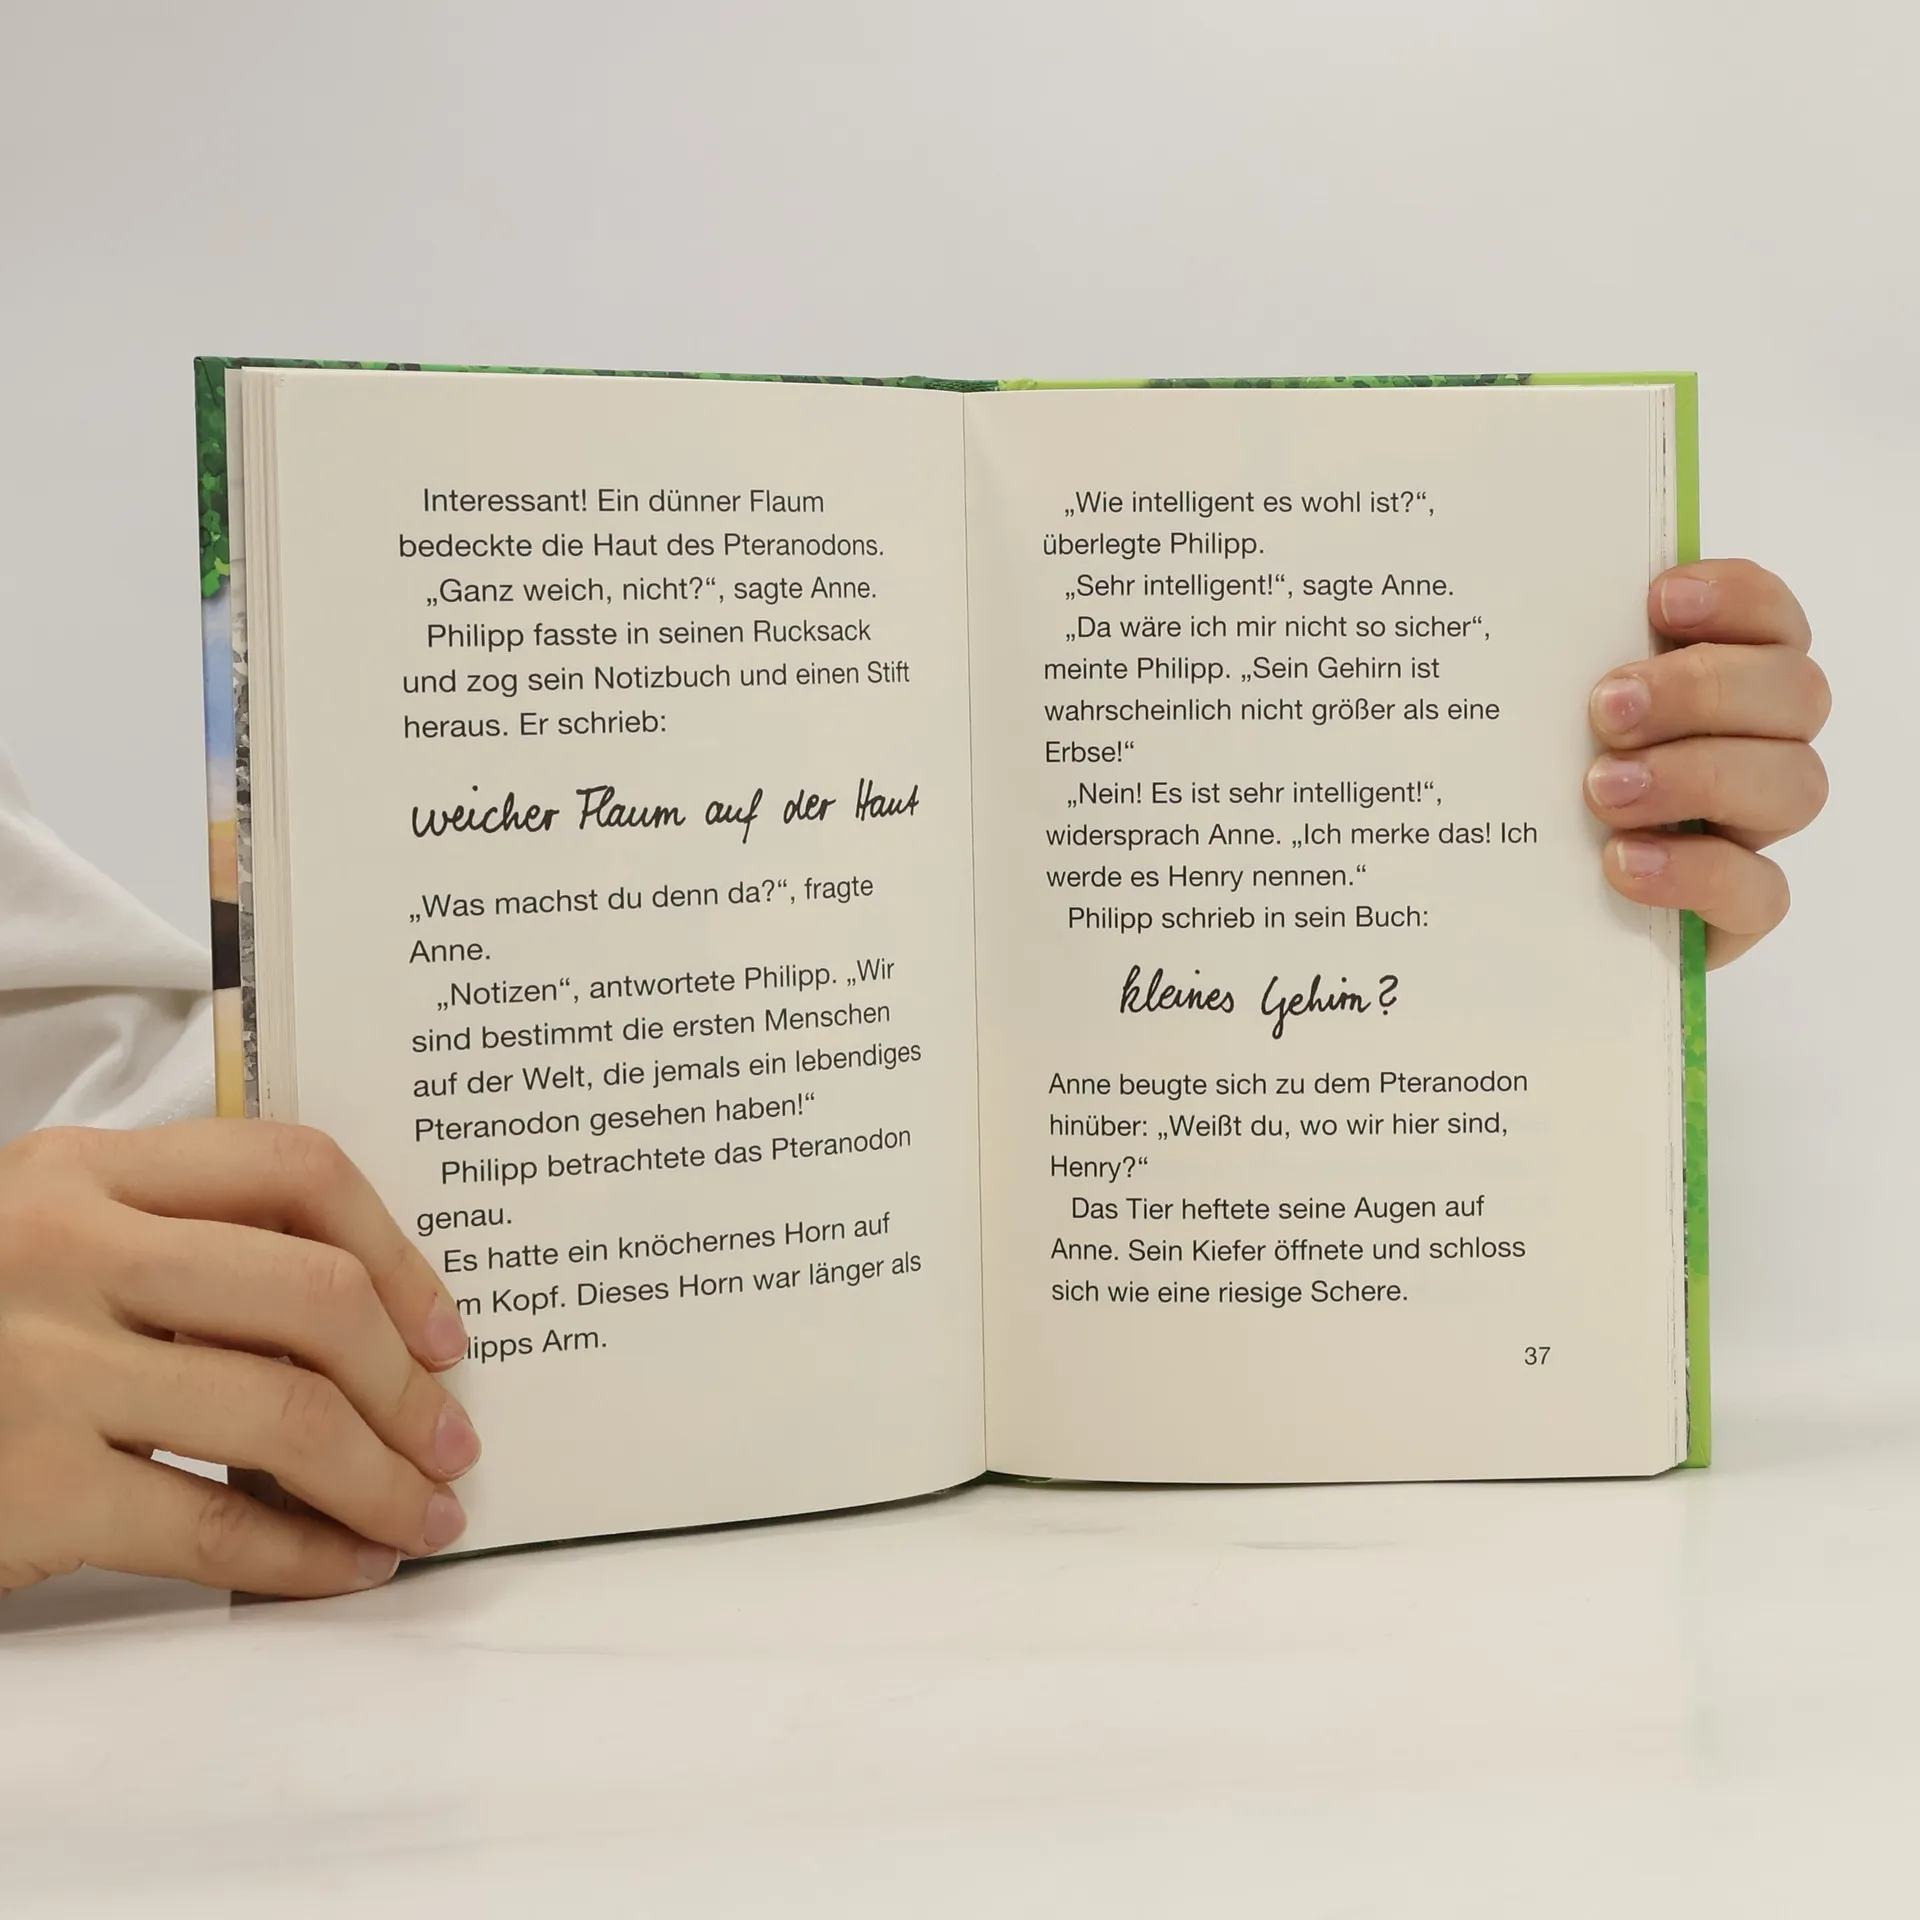 Interessant! Ein dünner Flaum
bedeckte die Haut des Pteranodons.
„Ganz weich, nicht?“, sagte Anne.
Philipp fasste in seinen Rucksack
und zog sein Notizbuch und einen Stift
heraus. Er schrieb:
weicher Flaum auf der Haut
„Was machst du denn da?“, fragte
Anne.
„Notizen“, antwortete Philipp. „Wir
sind bestimmt die ersten Menschen
auf der Welt, die jemals ein lebendiges
Pteranodon gesehen haben!“
Philipp betrachtete das Pteranodon
genau.
Es hatte ein knöchernes Horn auf
m Kopf. Dieses Horn war länger als
lipps Arm.
„Wie intelligent es wohl ist?“,
überlegte Philipp.
„Sehr intelligent!“, sagte Anne.
„Da wäre ich mir nicht so sicher“,
meinte Philipp. „Sein Gehirn ist
wahrscheinlich nicht größer als eine
Erbse!“
„Nein! Es ist sehr intelligent!“,
widersprach Anne. „Ich merke das! Ich
werde es Henry nennen.“
Philipp schrieb in sein Buch:
kleines Gehirn?
Anne beugte sich zu dem Pteranodon
hinüber: „Weißt du, wo wir hier sind,
Henry?“
Das Tier heftete seine Augen auf
Anne. Sein Kiefer öffnete und schloss
sich wie eine riesige Schere.
37